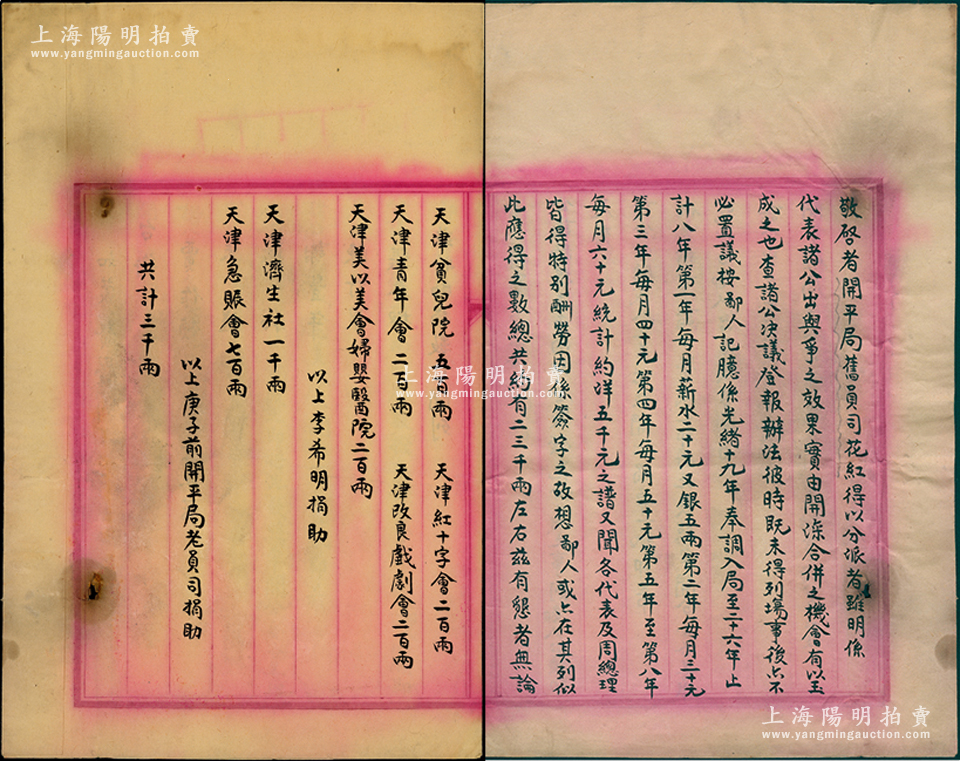 上海陽明拍賣
www.yangmingauction.com
上海陽明拍賣
www.yangmingauction.com
敬啓者開平局舊員司花紅得以分派者雖明係
代表諸公出與爭之效果實由開灤合併之機會有以玉
成之也查諸公決議登報辦法彼時既未得列場事後亦不
必置議按鄙人記臆係光緒十九年奉調入局至二十六年止
計八年第一年每月薪水二十元又銀五兩第二年每月三十元
第三年每月四十元第四年每月五十元第五年至第八年
每月六十元統計約洋五千元之譜又聞各代表及周總理
皆得特別酬勞因係簽字之故想鄙人或亦在其列似
此應得之數總共約有二三千兩左右茲有懇者無論
天津貧兒院 五百兩 天津紅十字會二百兩
天津青年會 二百兩 天津改良戲劇會二百兩
天津美以美會婦嬰醫院二百兩
以上李希明捐助
天津濟生社一千兩
天津急賑會七百兩
以上庚子前開平局老員司捐助
共計三千兩
上海陽明拍賣
www.yangmingauction.com